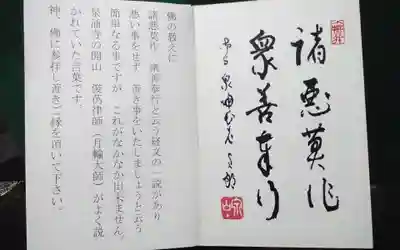 諸悪莫作
衆善奉行
佛の教えに
諸悪莫作 衆善奉行と云う経文の一説があり
悪い事をせず 善き事をいたしましょうと云う
簡単なる事ですが これがなかなか出来ません。
泉涌寺の開山 俊芿律師(月輪大師)がよく説
かれていた言葉です。
神、佛に参拝し善きご縁を頂いて下さい。